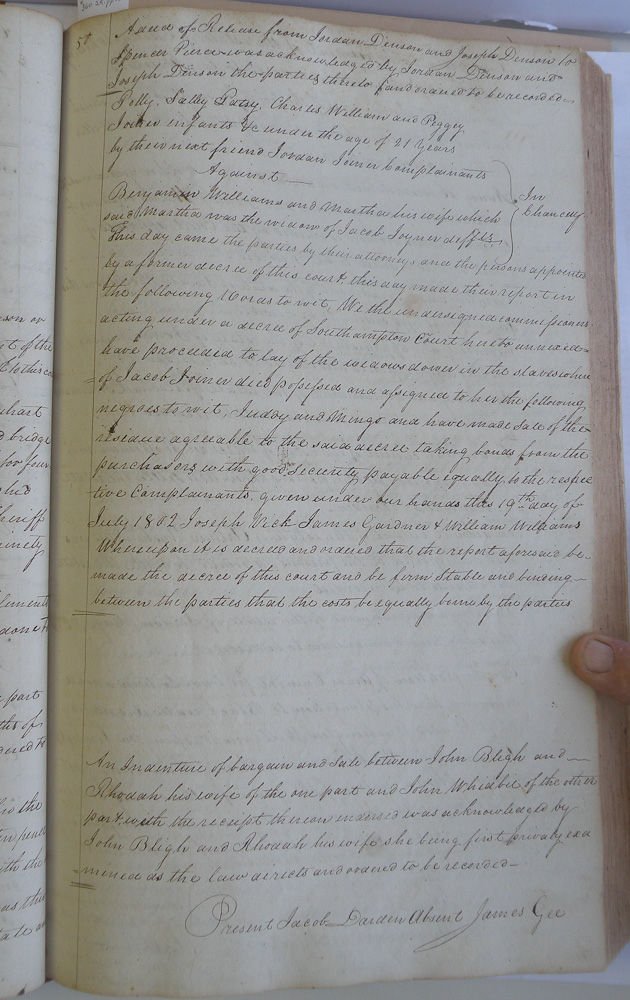 A deed of Release from Jordan Denson and Joseph Denson to
Spencer Pierce was acknowledged by Jordan Denson and
Joseph Denson the parties thereto and ordered to be recorded
Polly, Sally Patsy, Charles William and Peggy
Joiner infants &c under the age of 21 Years
by their next friend Jordan Joiner Complainants
Against
In
Chancery
Benjamin Williams and Martha his wife which
said Martha was the widow of Jacob Joyner defts
This day came the parties by their attorneys and the persons appointed
by a former decree of this court this day made their report in
the following words to wit, We the undersigned commissioners
acting under a decree of Southampton Court hereto annexed
have proceeded to lay of the widows dower in the slaves where
of Jacob Joiner died possessed and assigned to her the following
negroes to wit, Juday and Mingo and have made Sale of the
residue agreeable to the said decree taking bonds from the
purchasors with good Security payable equally to the respec
tive Complainants, given under our hands this 19th day of
July 1802 Joseph Vick James Gardner & William Williams
Whereupon it is decreed and ordered that the report aforesaid be
made the decree of this court and be firm Stable and binding
between the parties that the costs be equally borne by the parties
An Indenture of bargain and Sale between John Bligh and
Rhodah his wife of the one part and John Whidbie of the other
part with the receipt thereon endorsed was acknowledged by
John Bligh and Rhodah his wife she being first privaly exa
mined as the law directs and ordered to be recorded
Present Jacob Darden Absent James Gee